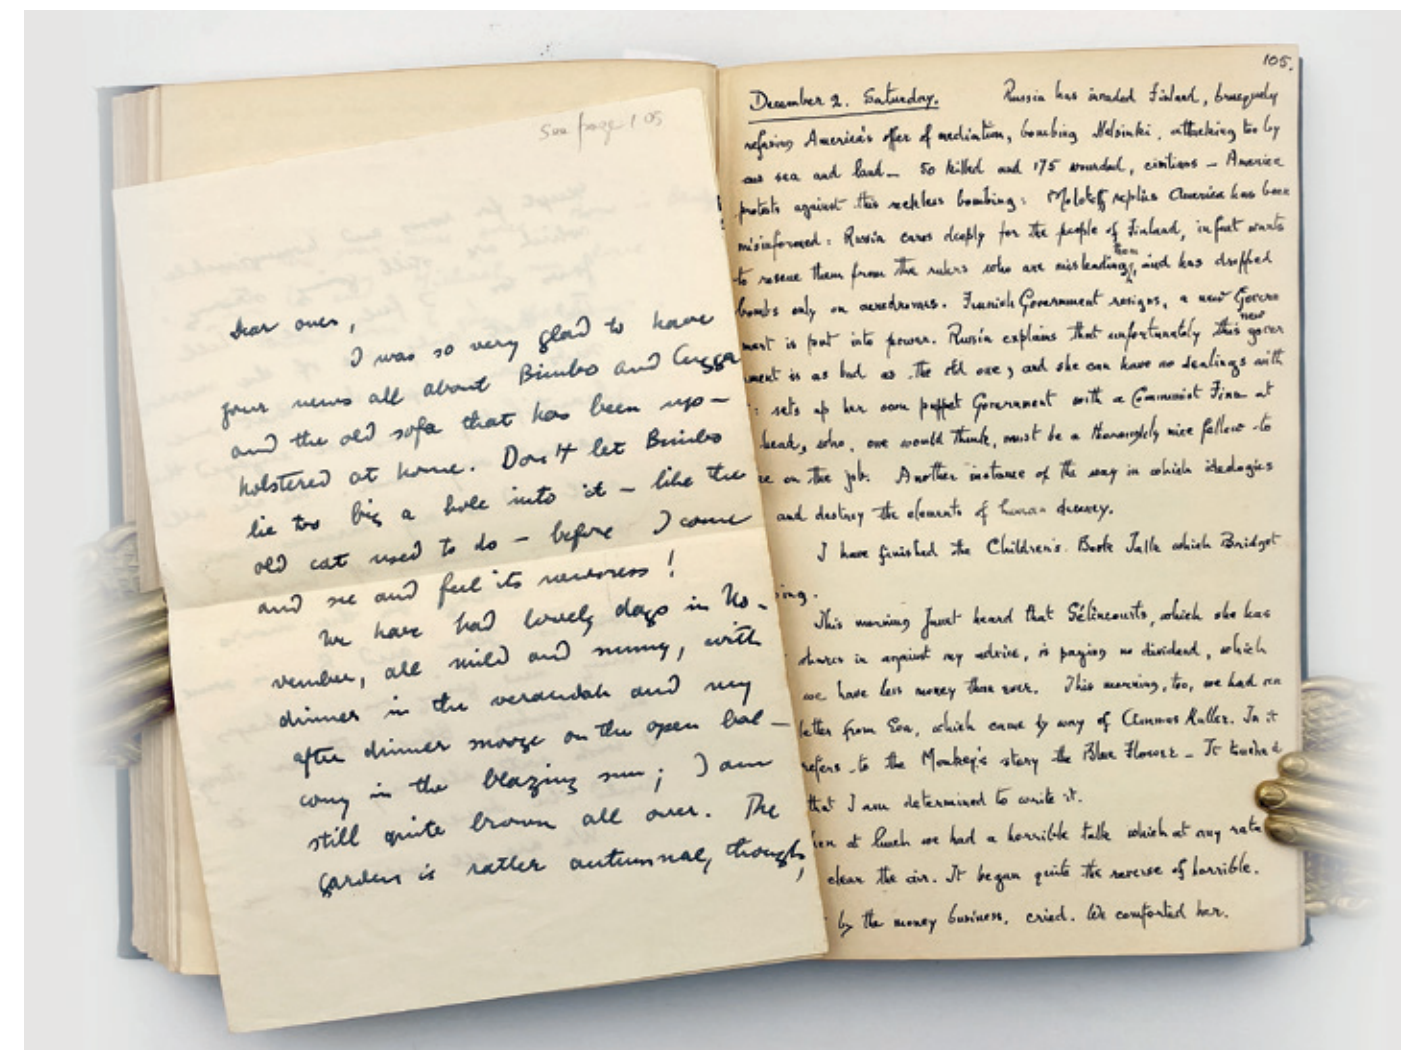 See page 105
Dear ones,
I was so very glad to have
your news all about Bimbo and
and the old sofa that has been up-
holstered at home. Don't let Bimbo
lie too big a hole into it – like the
old cat used to do – before I come
and see and feel its newness!
We have had lovely days in No-
vember, all mild and sunny, with
dinner in the verandah and my
after dinner snooze on the open bal-
cony in the blazing sun; I am
still quite brown all over. The
garden is rather autumnal, though,
105.
December 2. Saturday. Russia has invaded Finland, brusquely
refusing America's offer of mediation, bombing Helsinki, attacking too by
sea and land – 50 killed and 175 wounded, civilians – America
protests against this reckless bombing: Molotoff replies America has been
misinformed: Russia cares deeply for the people of Finland, in fact wants
to rescue them from the rulers who are misleading them, and has dropped
bombs only on aerodromes. Finnish Government resigns, a new Govern
ment is put into power. Russia explains that unfortunately this new gover
ment is as bad as the old one, and she can have no dealings with
: sets up her own puppet Government with a Communist Finn at
head, who, one would think, must be a thoroughly nice fellow to
on the job. Another instance of the way in which ideologies
and destroy the elements of human decency.
I have finished the Children's Book Talk which Bridget
ing.
This morning Janet heard that Sélincourts, which she has
shares in against my advice, is paying no dividend, which
we have less money than ever. This morning, too, we had
letter from Eva, which came by way of Muller. In it
refers to the Monkey's story the Blue Flower – It
that I am determined to write it.
at lunch we had a horrible talk which at any rate
clear the air. It began quite the reverse of horrible.
by the money business, cried. We comforted her.